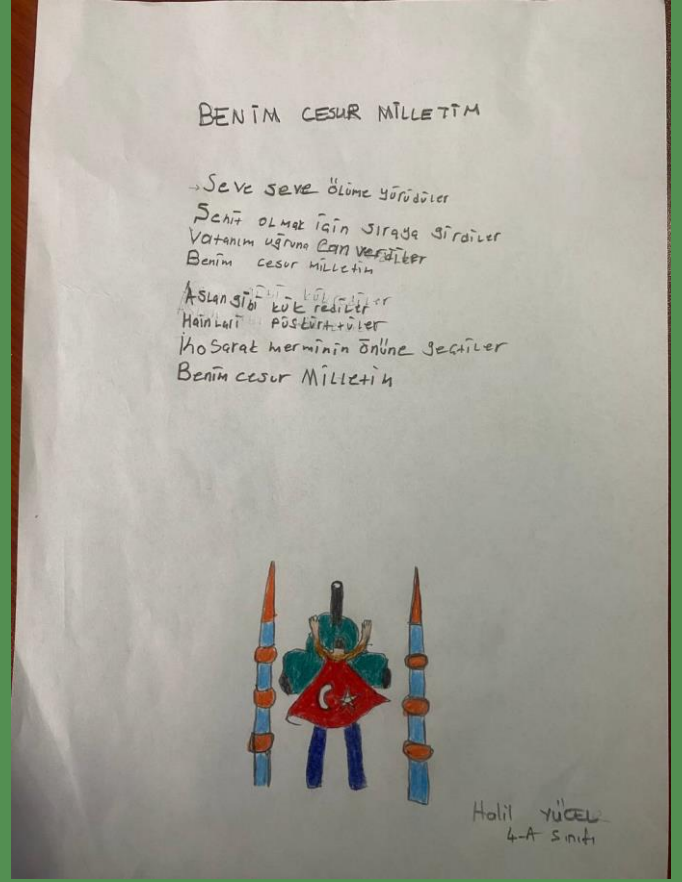 BENİM CESUR MİLLETİM
Seve seve ölüme yürüdüler
Şehit olmak için sıraya girdiler
Vatanım uğruna Can verdiler
Benim cesur milletim
Aslan gibi kük rediler
Hainleri püskürttüler
Koşarak merminin önüne geçtiler
Benim cesur Milletim
Halil YÜCEL
4-A Sınıfı